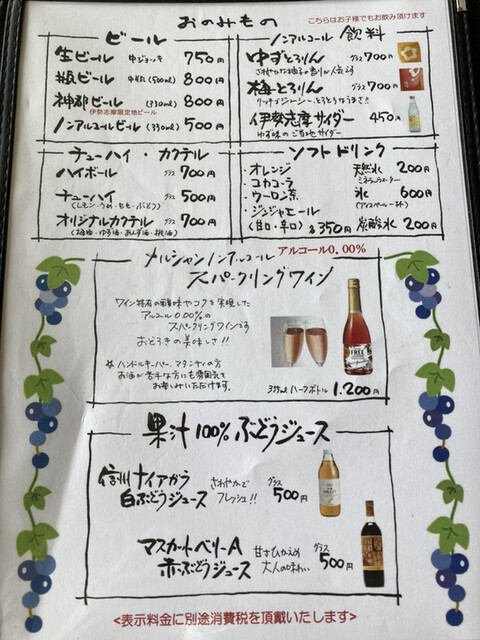 おのみもの
こちらはお子様でもお飲み頂けます
ビール
生ビール 中ジョッキ 750円
瓶ビール 中瓶(500ml) 800円
神都ビール (330ml) 800円
伊勢志摩限定地ビール
ノンアルコールビール (330ml) 500円
ノンアルコール 飲料
ゆずとろりん グラス 700円
さわやかな柚子の香りが人気です
梅とろりん グラス 700円
伊勢志摩サイダー 450円
ゆず味のご当地サイダー
チューハイ・カクテル
ハイボール グラス 700円
チューハイ グラス 500円
(レモン・うめ・もも・ぶどう)
オリジナルカクテル グラス 700円
(梅酒・ゆず酒・あんず酒・桃酒)
ソフトドリンク
・オレンジ
・コカコーラ
・ウーロン茶
・ジンジャエール
(甘口・辛口) 各350円
天然水 200円
ミネラルウォーター
氷 600円
(アイスペール一杯)
炭酸水 200円
メルシャンノンアルコール アルコール0.00%
スパークリングワイン
ワイン特有の酸味やコクを実現した
アルコール0.00%の
スパークリングワインです
おどろきの美味しさ!!
☆ハンドルキーパー、マタニティの方
お酒が苦手な方にも雰囲気で
お楽しみいただけます。
FREE
ハーフボトル 1.200円
果汁100%ぶどうジュース
信州ナイアガラ
白ぶどうジュース
さわやかで
フレッシュ!!
グラス
500円
マスカットベリーA
赤ぶどうジュース
甘さひかえめ
大人の味わい
グラス
500円
<表示料金に別途消費税を頂戴いたします>